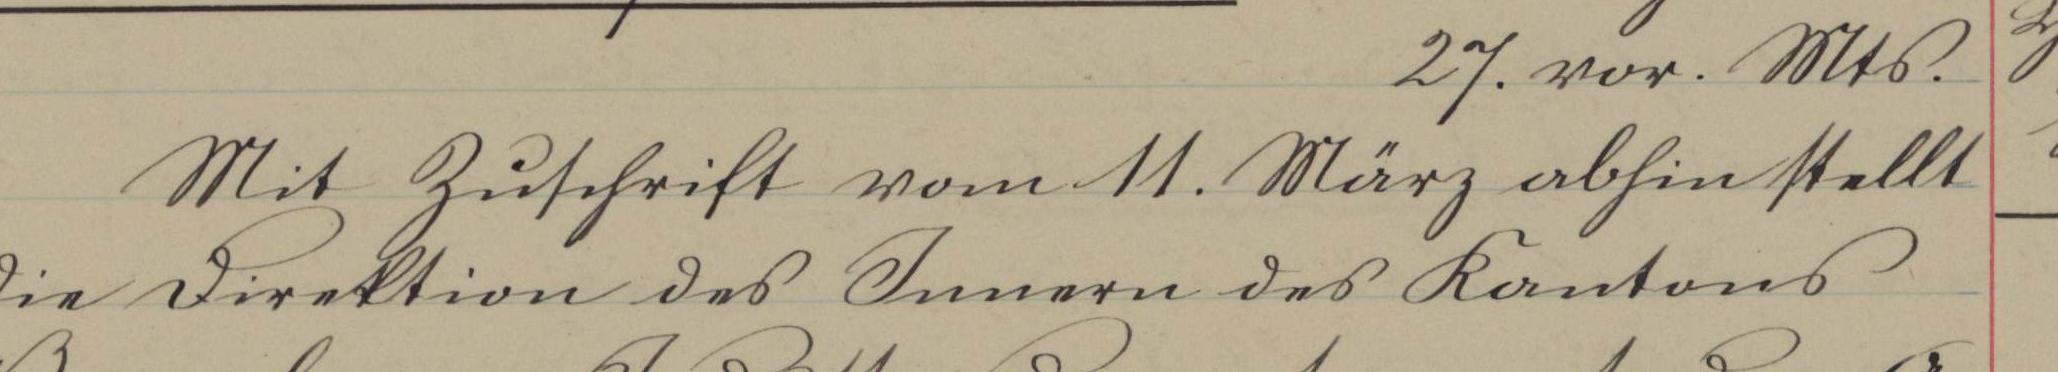 27. vor. Mts.
Mit Zuschrift vom 11. März abhin stellt
die Direktion des Innern des Kantons